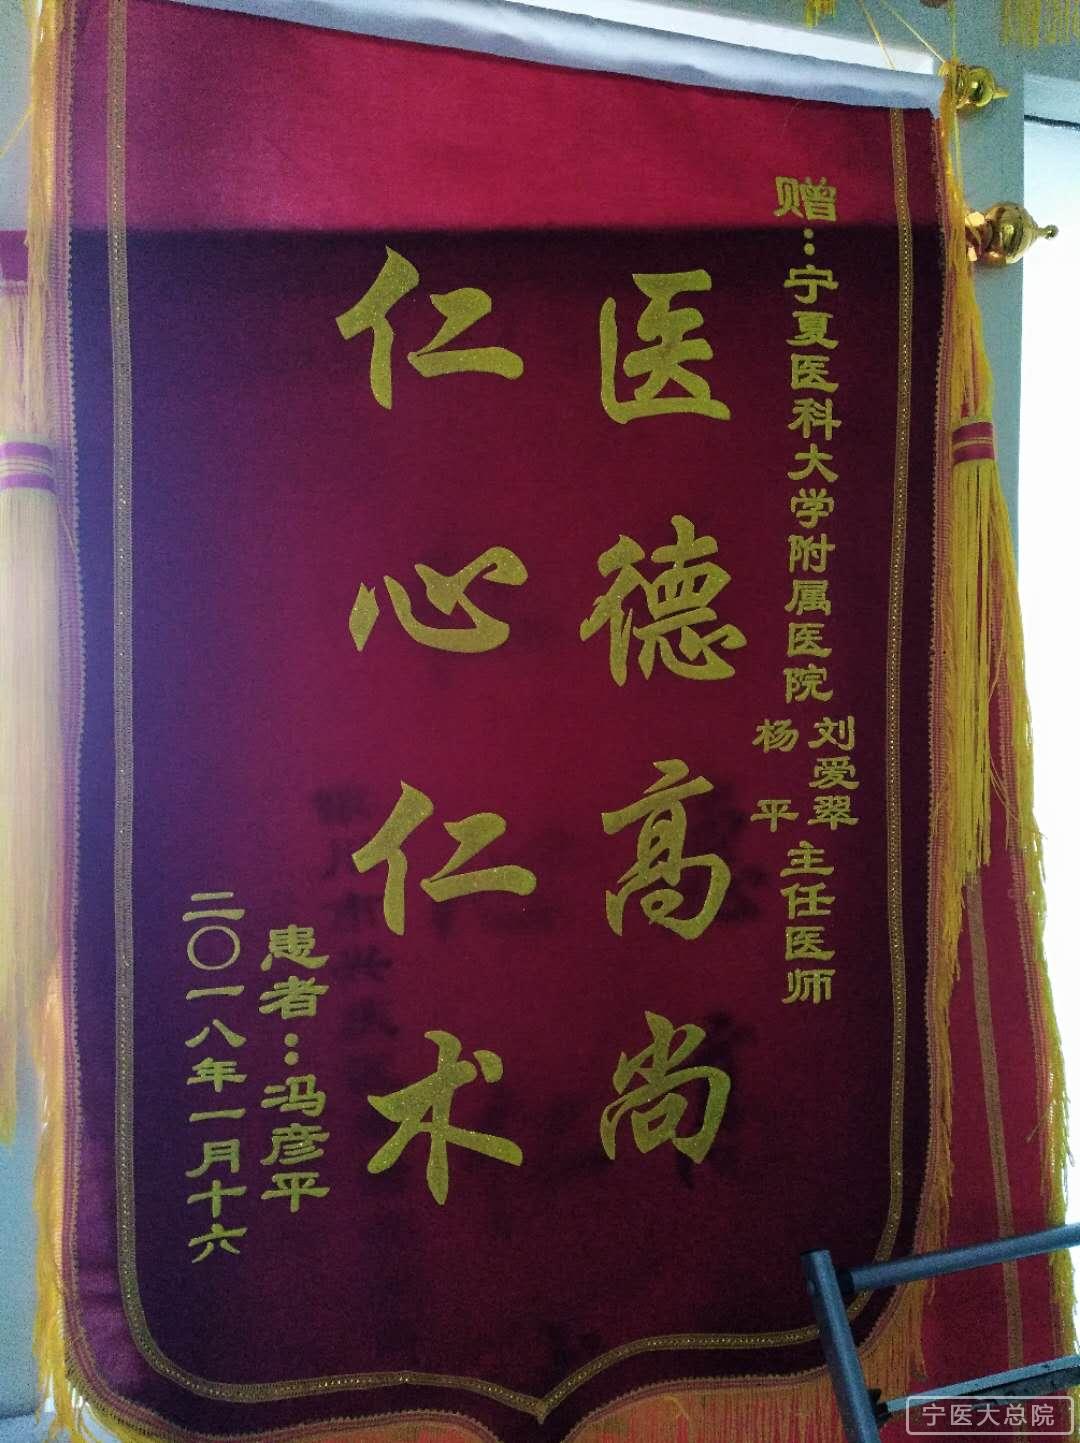 赠：宁夏医科大学附属医院
刘爱翠
杨平
主任医师
医德高尚
仁心仁术
患者：冯彦平
二〇一八年一月十六
宁医大总院